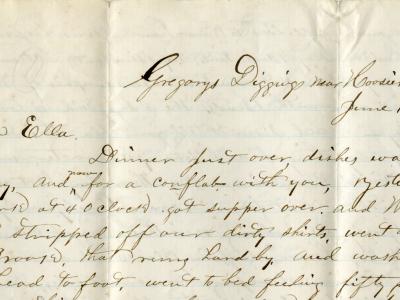 Gregorys Diggings near Hoosier
June
Ella.
Dinner just over, dishes wa
and now for a conflab with you,
at 4 oclock got supper over and W
stripped off our dirty shirts, went
that runs hard by, and wash
head to foot, went to bed feeling fifty p